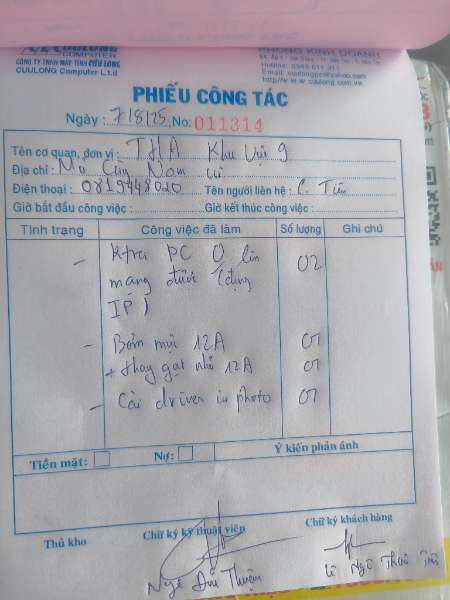 CUULONG
COMPUTER
CÔNG TY TNHH MÁY TÍNH CỬU LONG
CUULONG Computer L.t.d
PHÒNG KINH DOANH
PHIẾU CÔNG TÁC
Ngày: 7/8/25 No: 011314
Tên cơ quan, đơn vị: THA Khu Vực 9
Địa chỉ: Mỏ Cày Nam
Điện thoại: 0819448020 Tên người liên hệ: C. Tiên
Giờ bắt đầu công việc: Giờ kết thúc công việc:
Tình trạng Công việc đã làm Số lượng Ghi chú
- Ktra PC O lên 02
mạng được (đụng
IP)
- Bơm mực 12A 01
+ Thay gạt nhỏ 12A 01
- Cài driver in photo 01
Tiền mặt: Nợ: Ý kiến phản ánh
Thủ kho Chữ ký kỹ thuật viên Chữ ký khách hàng
Ngô Đức Thuận